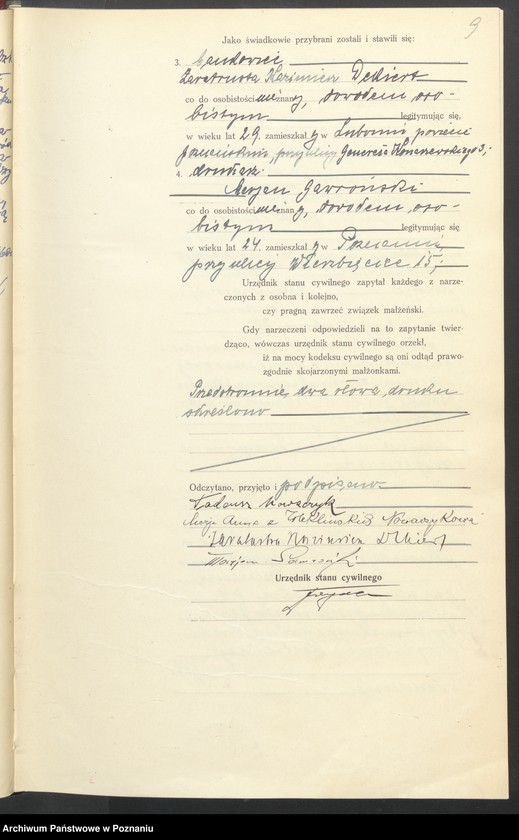 9
Jako świadkowie przybrani zostali i stawili się:
3.
Zaratrusta Kazimierz Deckert
co do osobistości nieznany, dowodem oso-
bistym legitymując się,
w wieku lat 29, zamieszkały w Luboniu, powiecie
poznańskim, przy ulicy Generała Konarzewskiego 3;
4. drukarz
Marjan Gawroński
co do osobistości nieznany, dowodem oso-
bistym legitymując się
w wieku lat 24, zamieszkały w Poznaniu,
przy ulicy Wierzbięcice 15;
Urzędnik stanu cywilnego zapytał każdego z narze-
czonych z osobna i kolejno,
czy pragną zawrzeć związek małżeński.
Gdy narzeczeni odpowiedzieli na to zapytanie twier-
dząco, wówczas urzędnik stanu cywilnego orzekł,
iż na mocy kodeksu cywilnego są oni odtąd prawo-
zgodnie skojarzonymi małżonkami.
Przedstronnie dwa słowa druku
skreślono
Odczytano, przyjęto i podpisano
Tadeusz Nowaczyk
Anna z Nowaczykowa
Zaratustra Kazimierz Deckert
Marjan Gawroński
Urzędnik stanu cywilnego
Archiwum Państwowe w Poznaniu